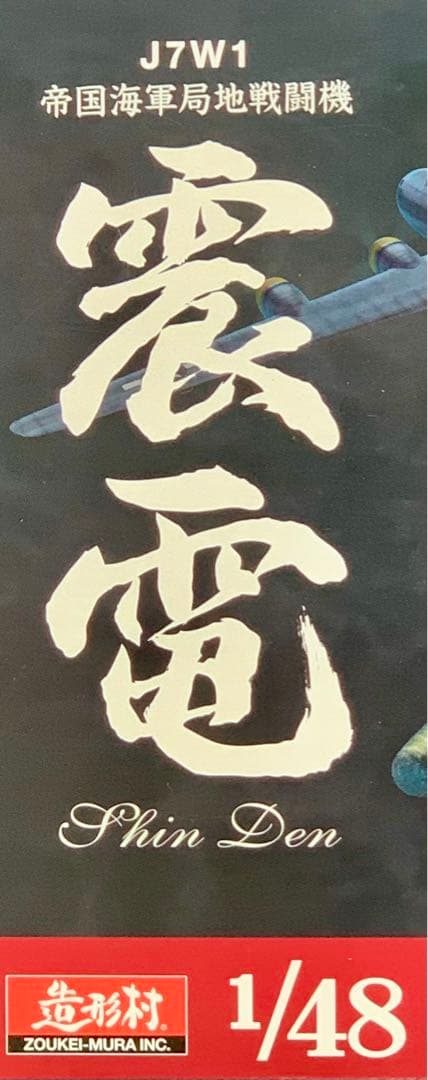 J7W1
帝国海軍局地戦闘機
震電
Shin Den
造形村
ZOUKEI-MURA INC.
1/48